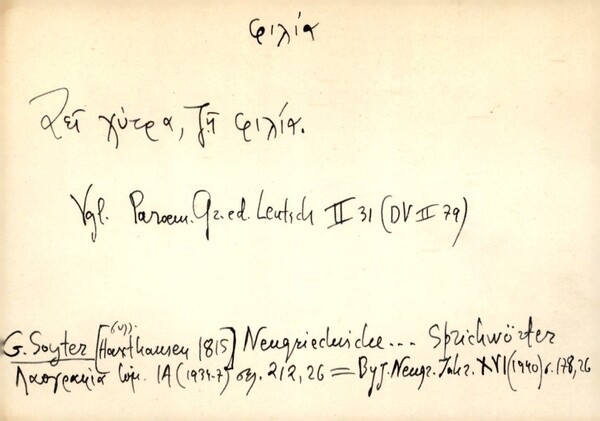 φιλία
Ζεῖ χύτρα, ζῆ φιλία.
Vgl. Paroem. Gr. ed. Leutsch II 31 (DV II 79)
συλλ.
G. Soyter [Haxthausen 1815] Neugriechische... Sprichwörter
Λαογραφία τόμ. ΙΑ (1934-7) σελ. 212, 26 = Byz. Neugr. Jahr. XVI (1940) σ. 178, 26